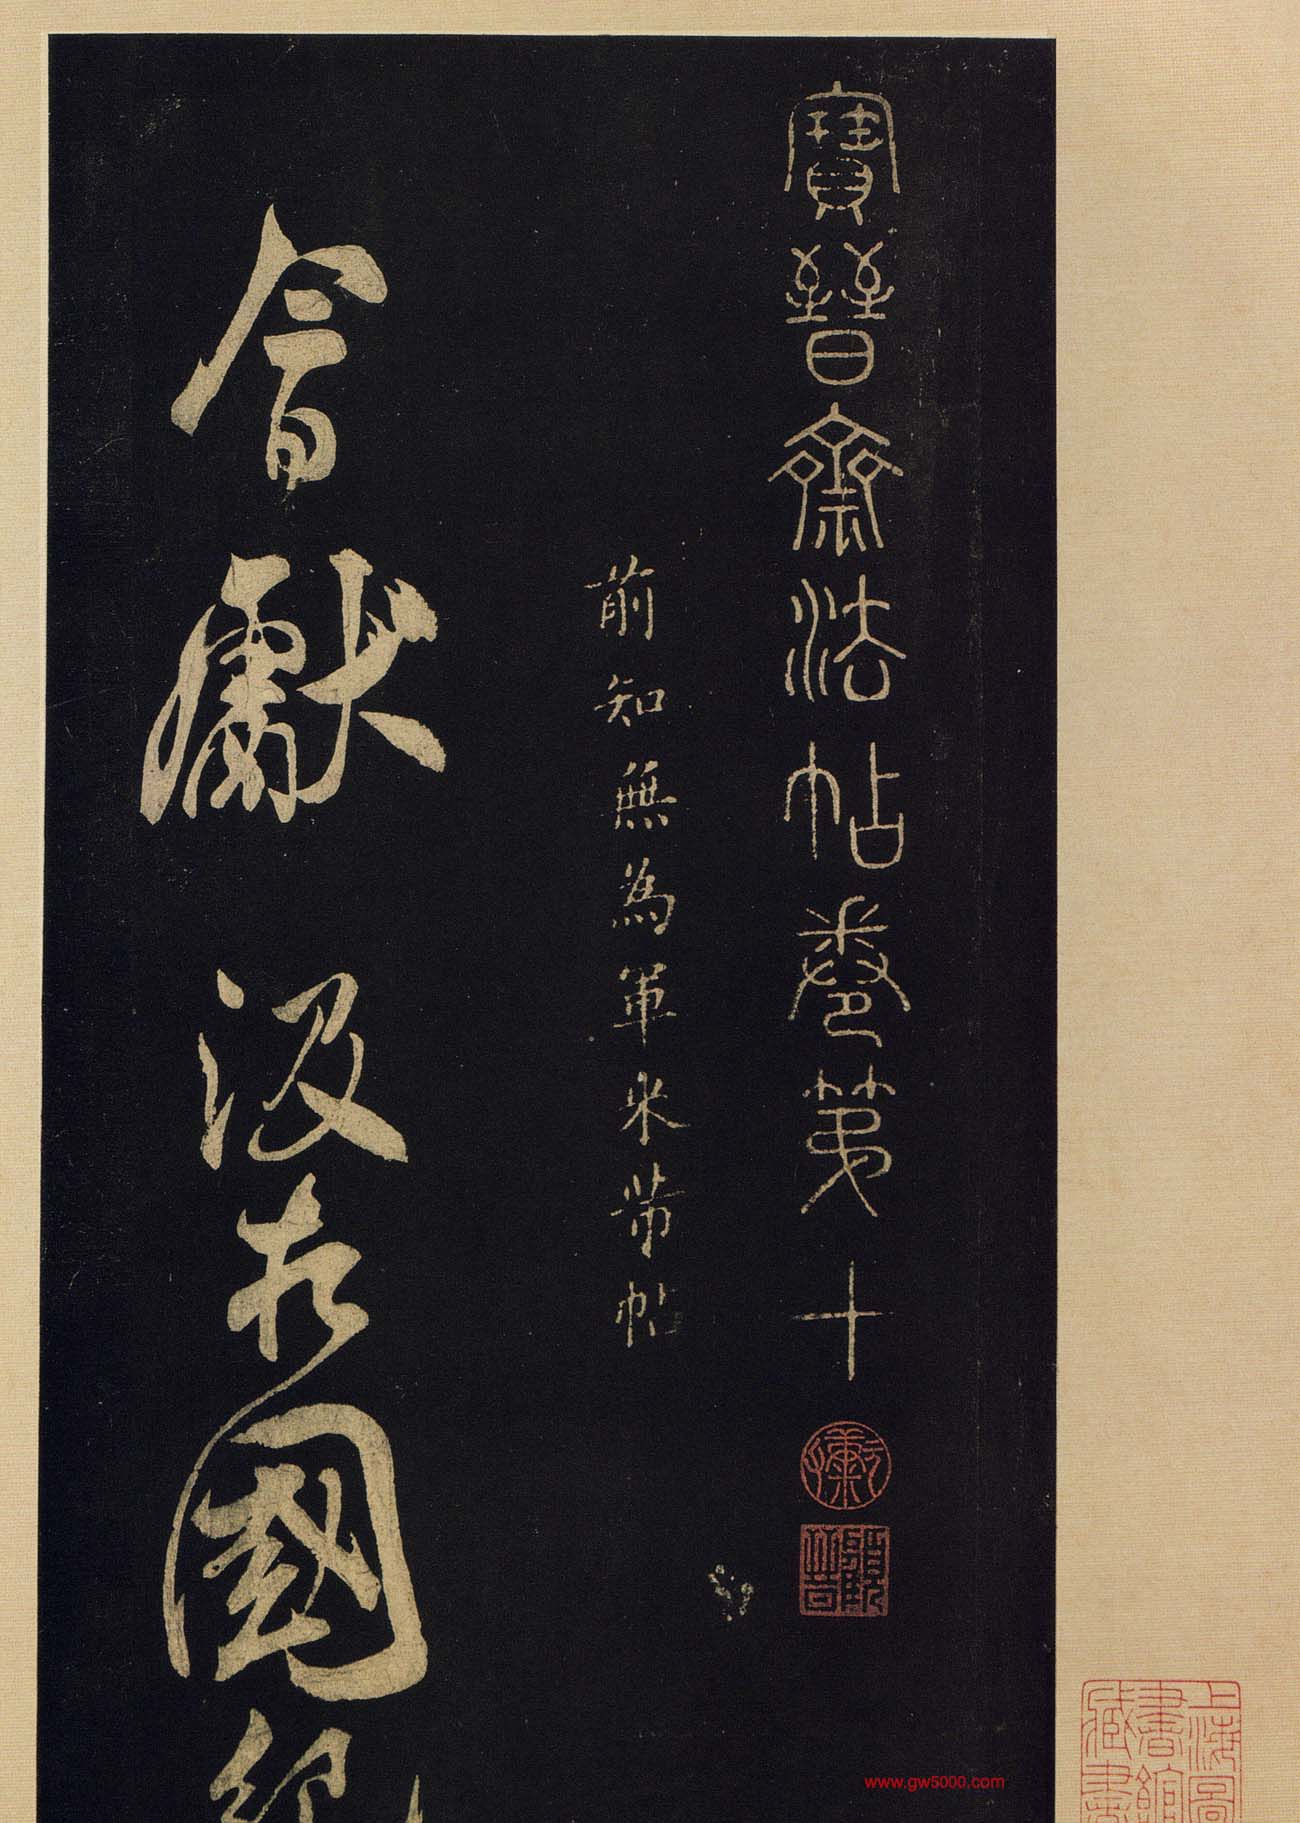 寶晉齋法帖卷第十
前知無為軍米芾帖
會獻 汲 國紀
上海圖書館藏書
www.gw5000.com